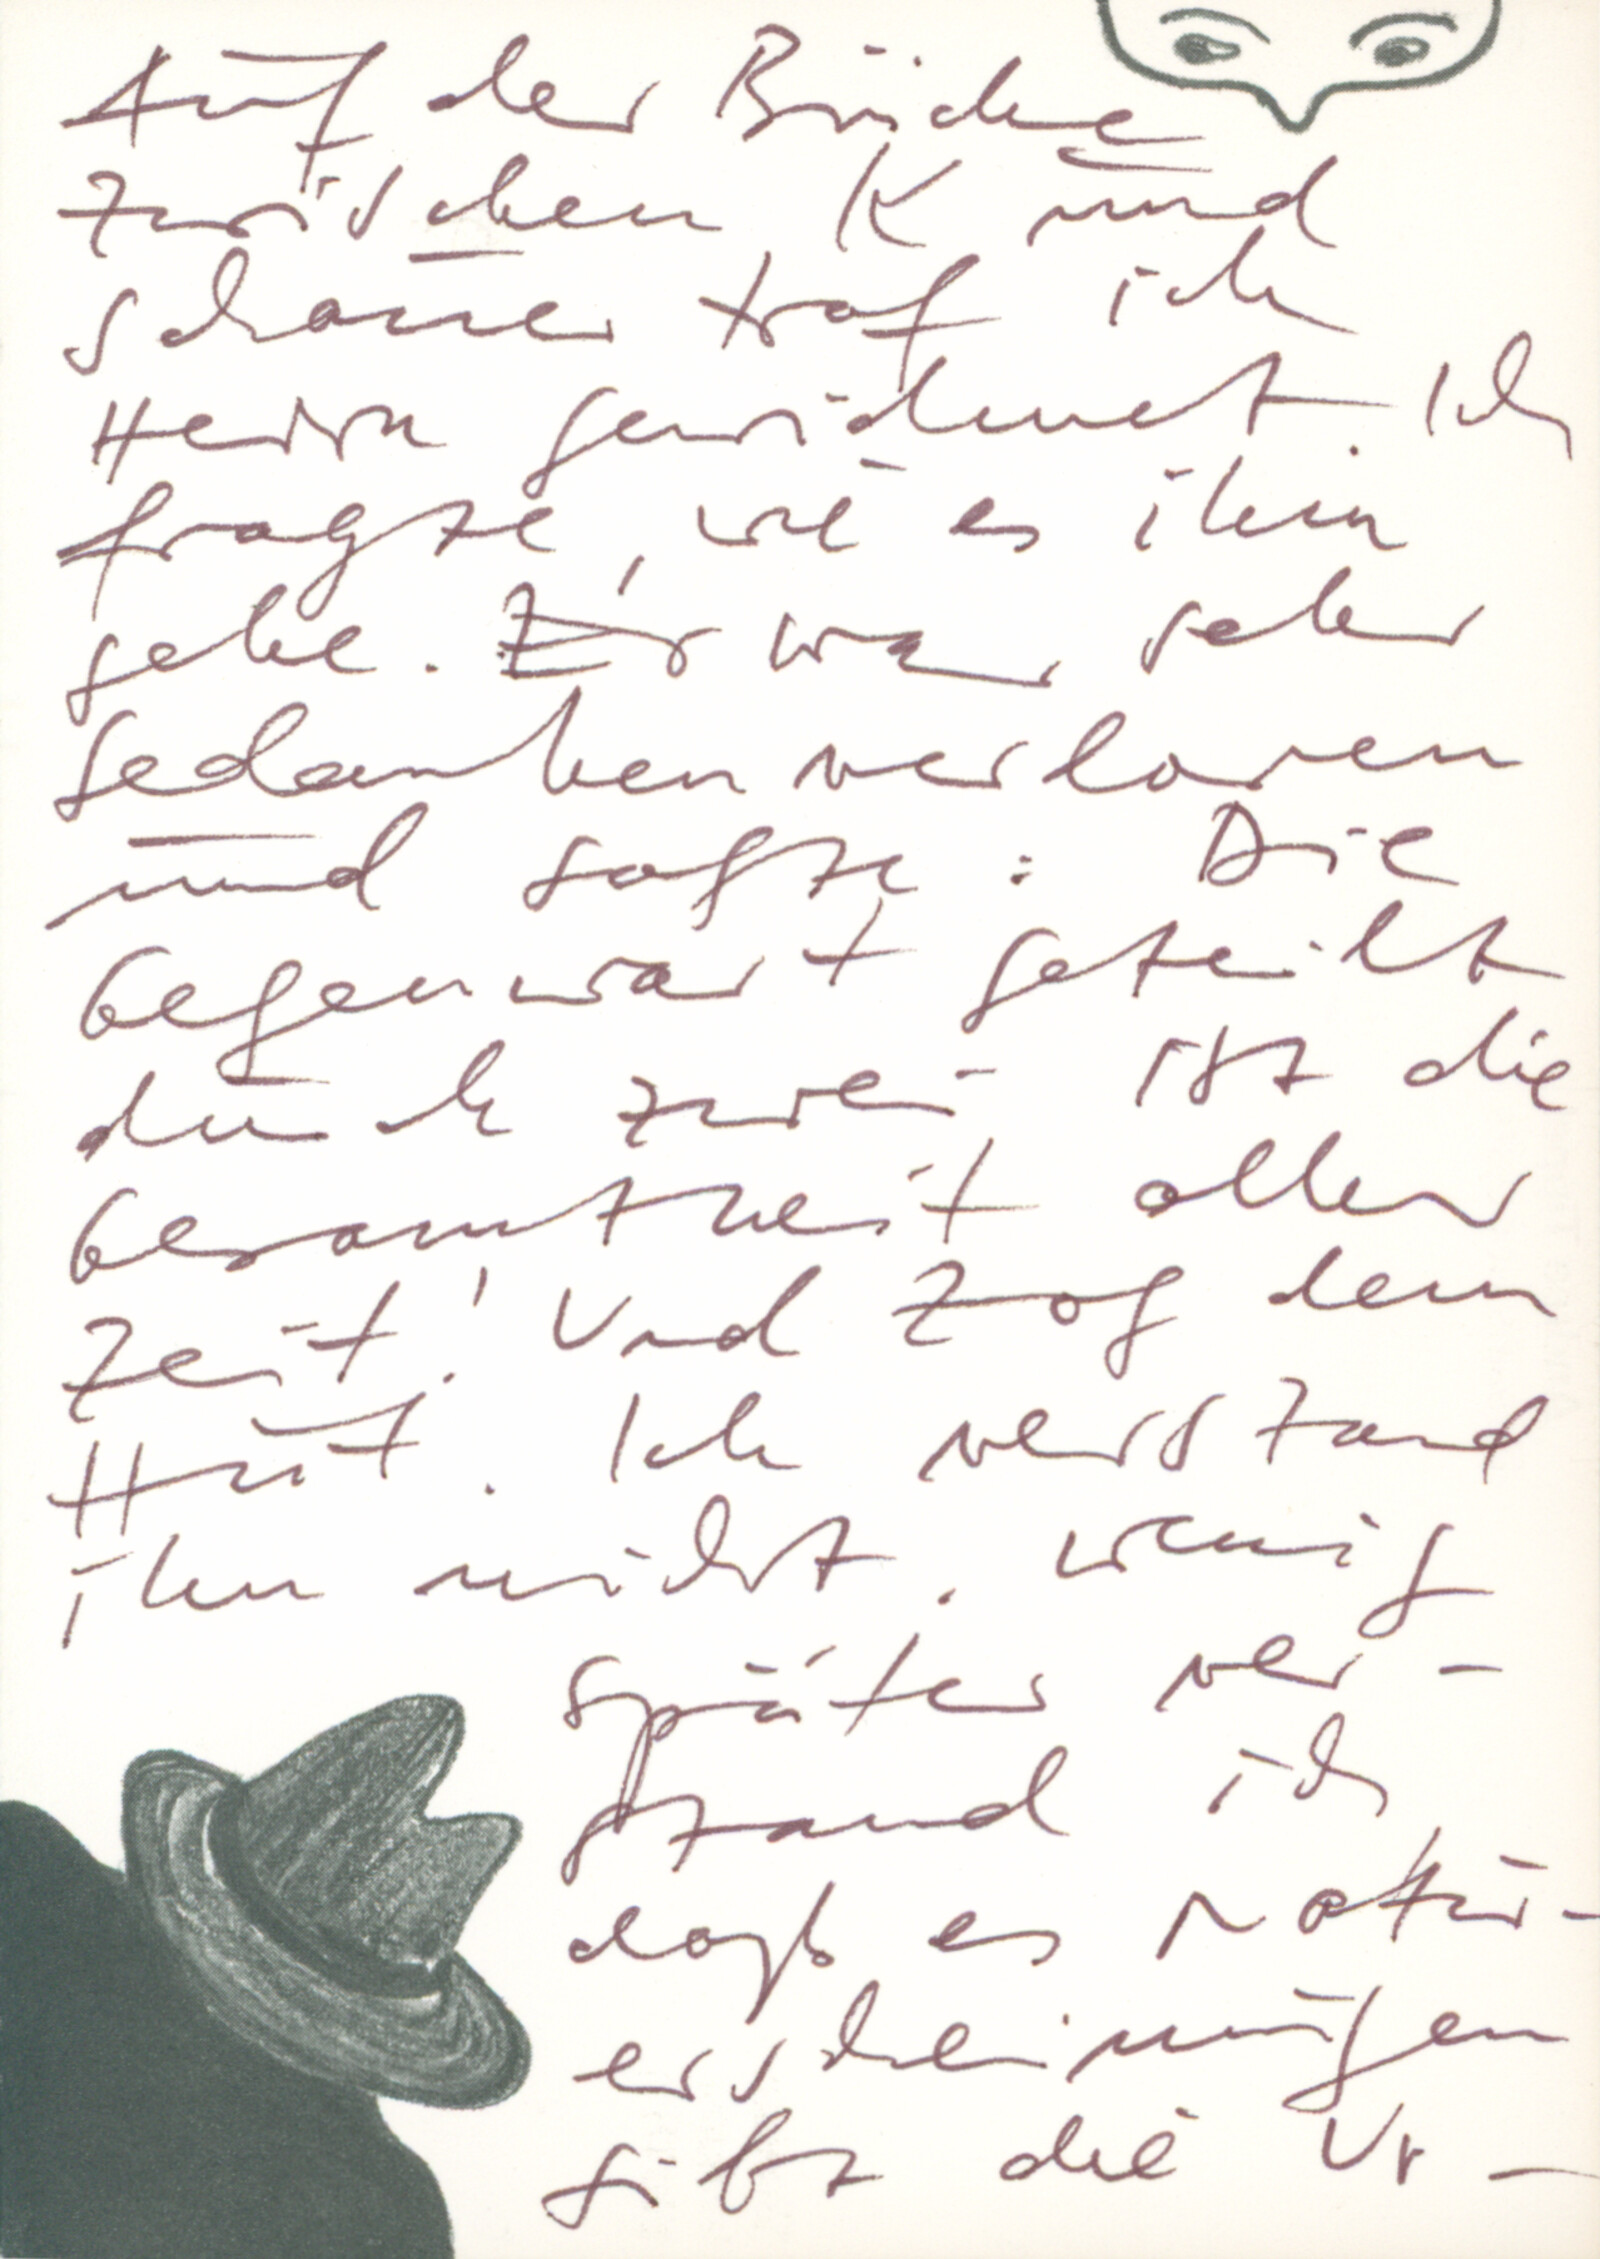 Auf der Brücke
zwischen K und
schauer traf ich
Herrn gewidmet. Ich
fragte, wie es ihm
gehe. Er war sehr
gedankenverloren
und sagte: Die
Gegenwart geteilt
durch zwei ist die
Gesamtheit aller
Zeit! Und zog den
Hut. Ich verstand
ihn nicht. Wenig
später ver-
stand ich
daß es Natur-
erscheinungen
gibt die Ur-